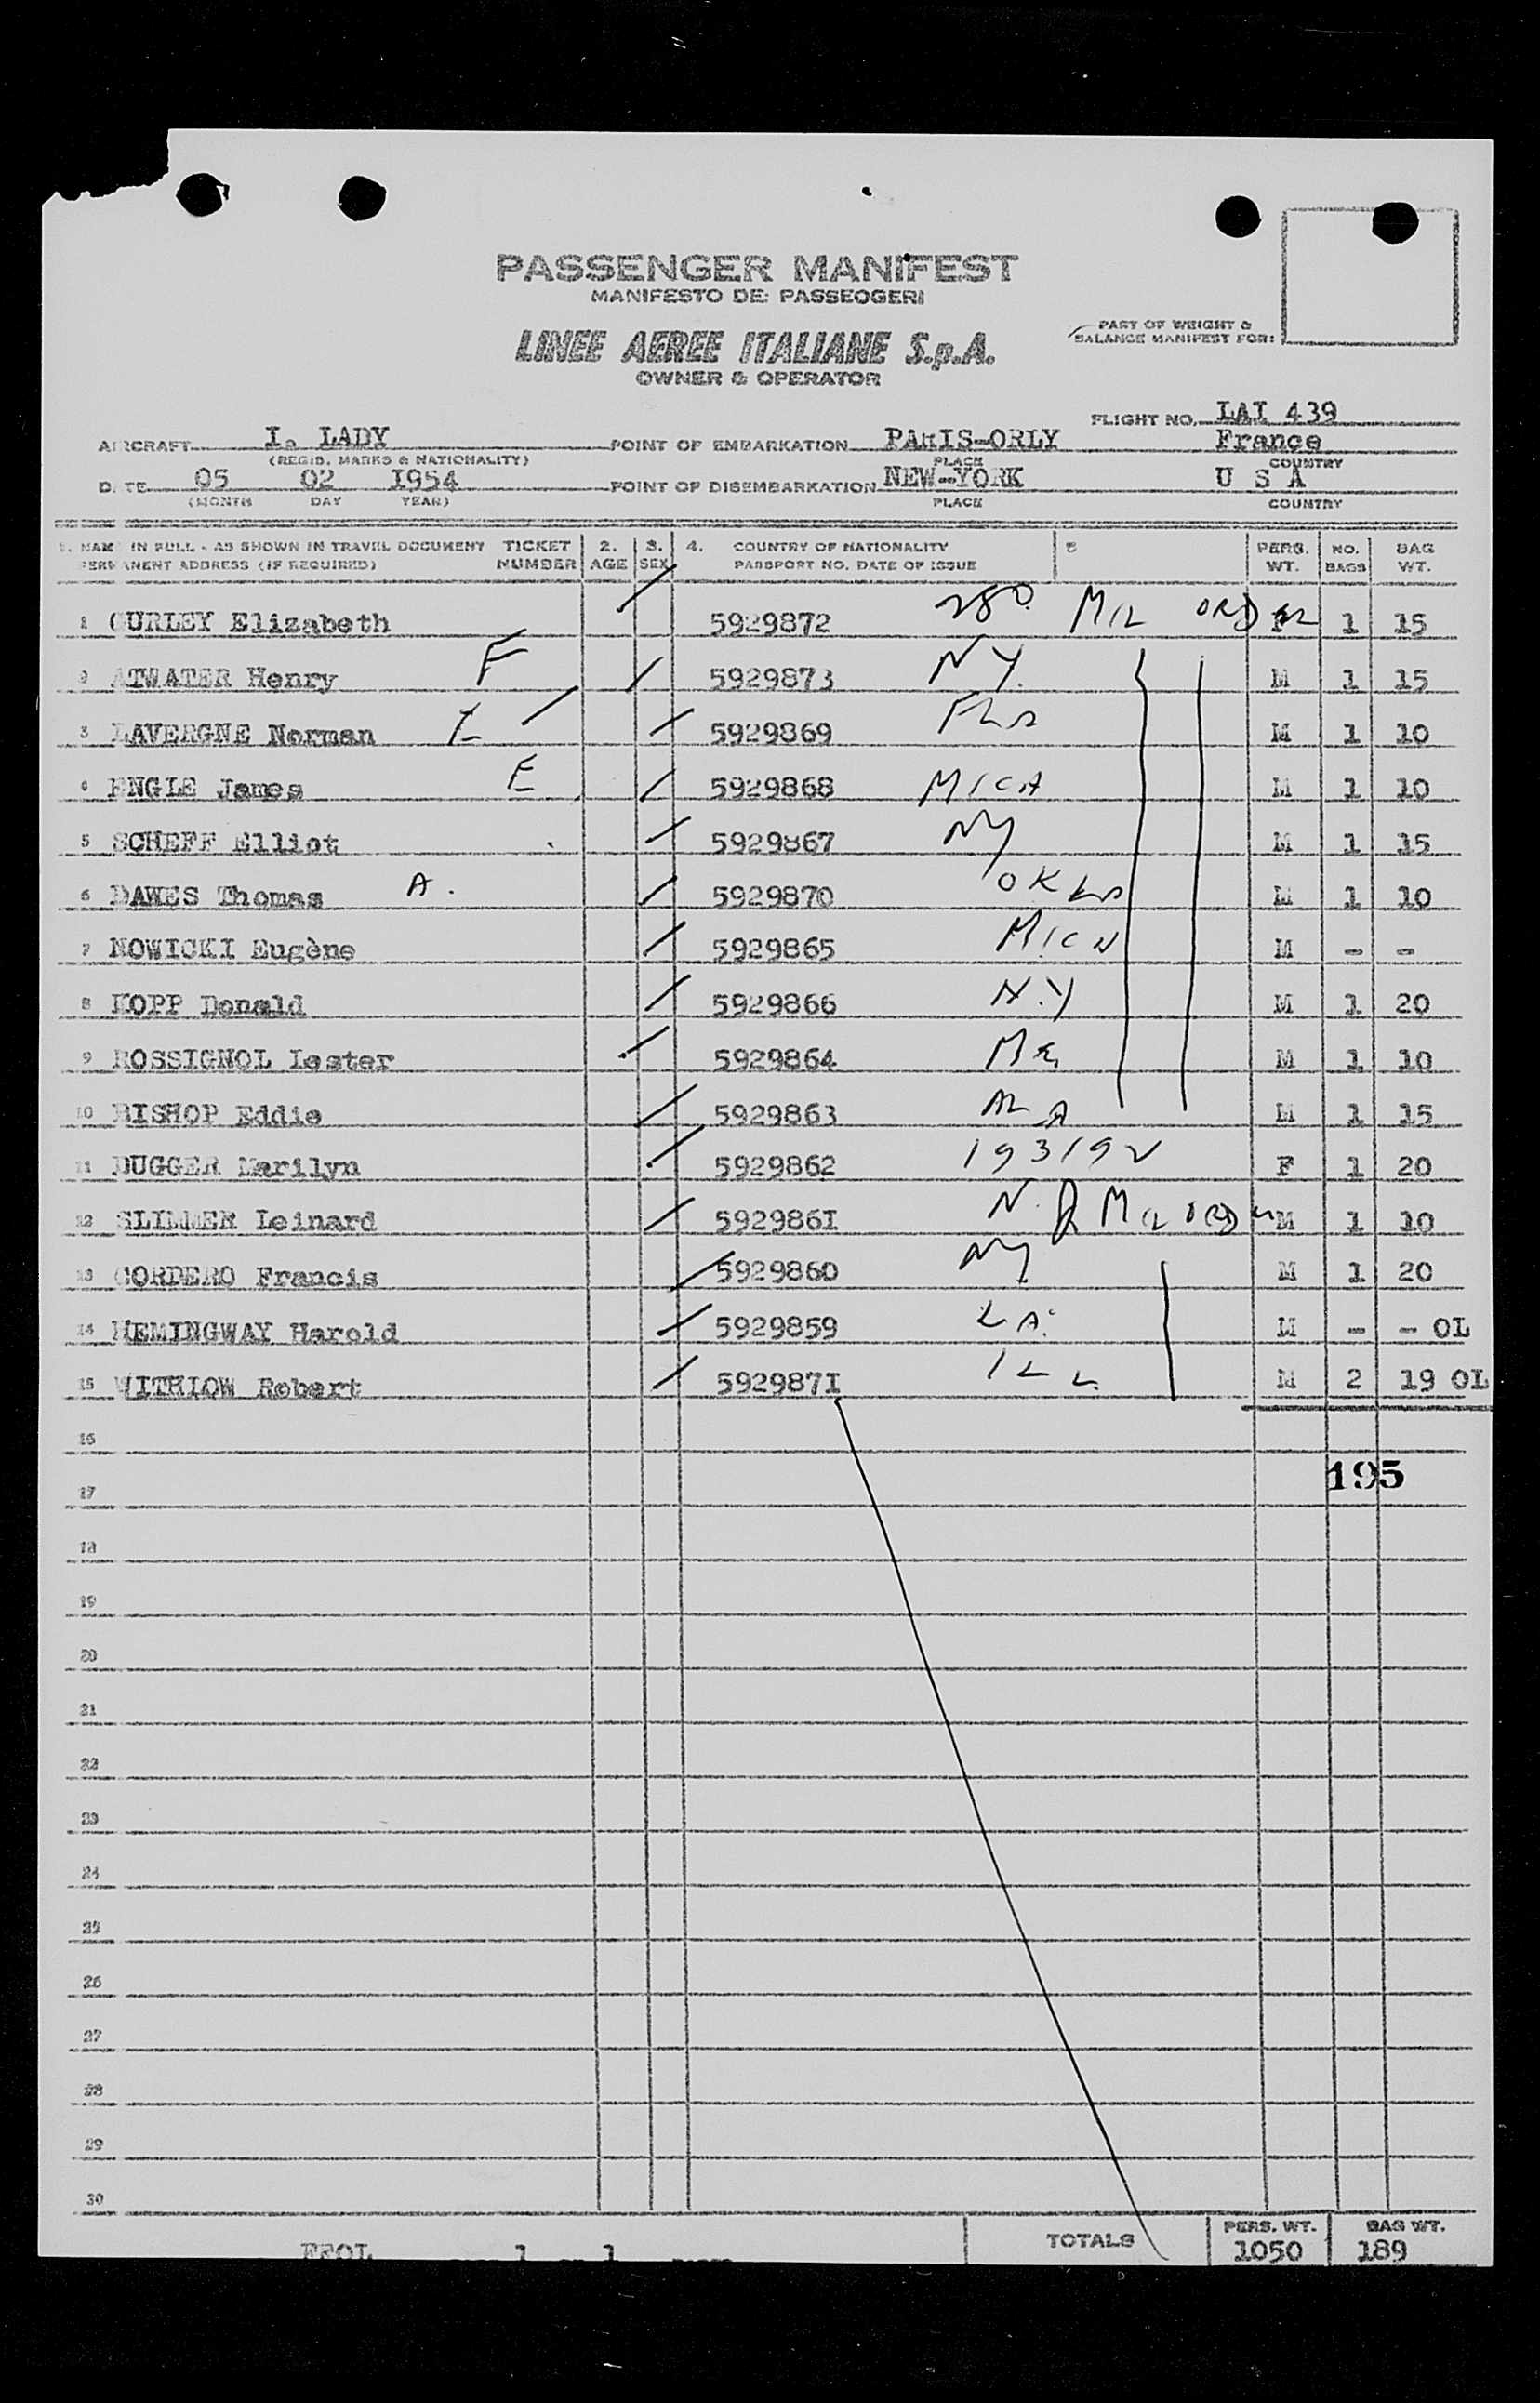 PASSENGER MANIFEST
MANIFESTO DE: PASSEOGERI
LINEE AEREE ITALIANE S.p.A.
OWNER & OPERATOR
PART OF WEIGHT & BALANCE MANIFEST FOR:
FLIGHT NO. LAI 439
AIRCRAFT I. LADY POINT OF EMBARKATION PARIS-ORLY France
(REGIS. MARKS & NATIONALITY) PLACE COUNTRY
DATE 05 02 I954 POINT OF DISEMBARKATION NEW-YORK U S A
(MONTH DAY YEAR) PLACE COUNTRY
1. NAME IN FULL - AS SHOWN IN TRAVEL DOCUMENT TICKET 2. 3. 4. COUNTRY OF NATIONALITY 5 PERS. NO. BAG
PERMANENT ADDRESS (IF REQUIRED) NUMBER AGE SEX PASSPORT NO. DATE OF ISSUE WT. BAGS WT.
1 CURLEY Elizabeth 5929872 280 MIL ORDER F 1 15
2 ATWATER Henry F 5929873 NY M 1 15
3 LAVERGNE Norman E 5929869 FLA M 1 10
4 ENGLE James E 5929868 MICH M 1 10
5 SCHEFF Elliot 5929867 NY M 1 15
6 DAWES Thomas A. 5929870 OKLA M 1 10
7 NOWICKI Eugène 5929865 MICH M - -
8 KOPP Donald 5929866 N.Y M 1 20
9 ROSSIGNOL Lester 5929864 ME M 1 10
10 BISHOP Eddie 5929863 ALA M 1 15
11 DUGGER Marilyn 5929862 F 1 20
12 SLIMMER Leinard 592986I N.J MIL ORDER M 1 10
13 CORDERO Francis 5929860 NY M 1 20
14 HEMINGWAY Harold 5929859 LA. M - - OL
15 WITHLOW Robert 592987I ILL M 2 19 OL
16
195
17
18
19
20
21
22
23
24
25
26
27
28
29
30
TOTALS PERS. WT. BAG WT.
1050 189